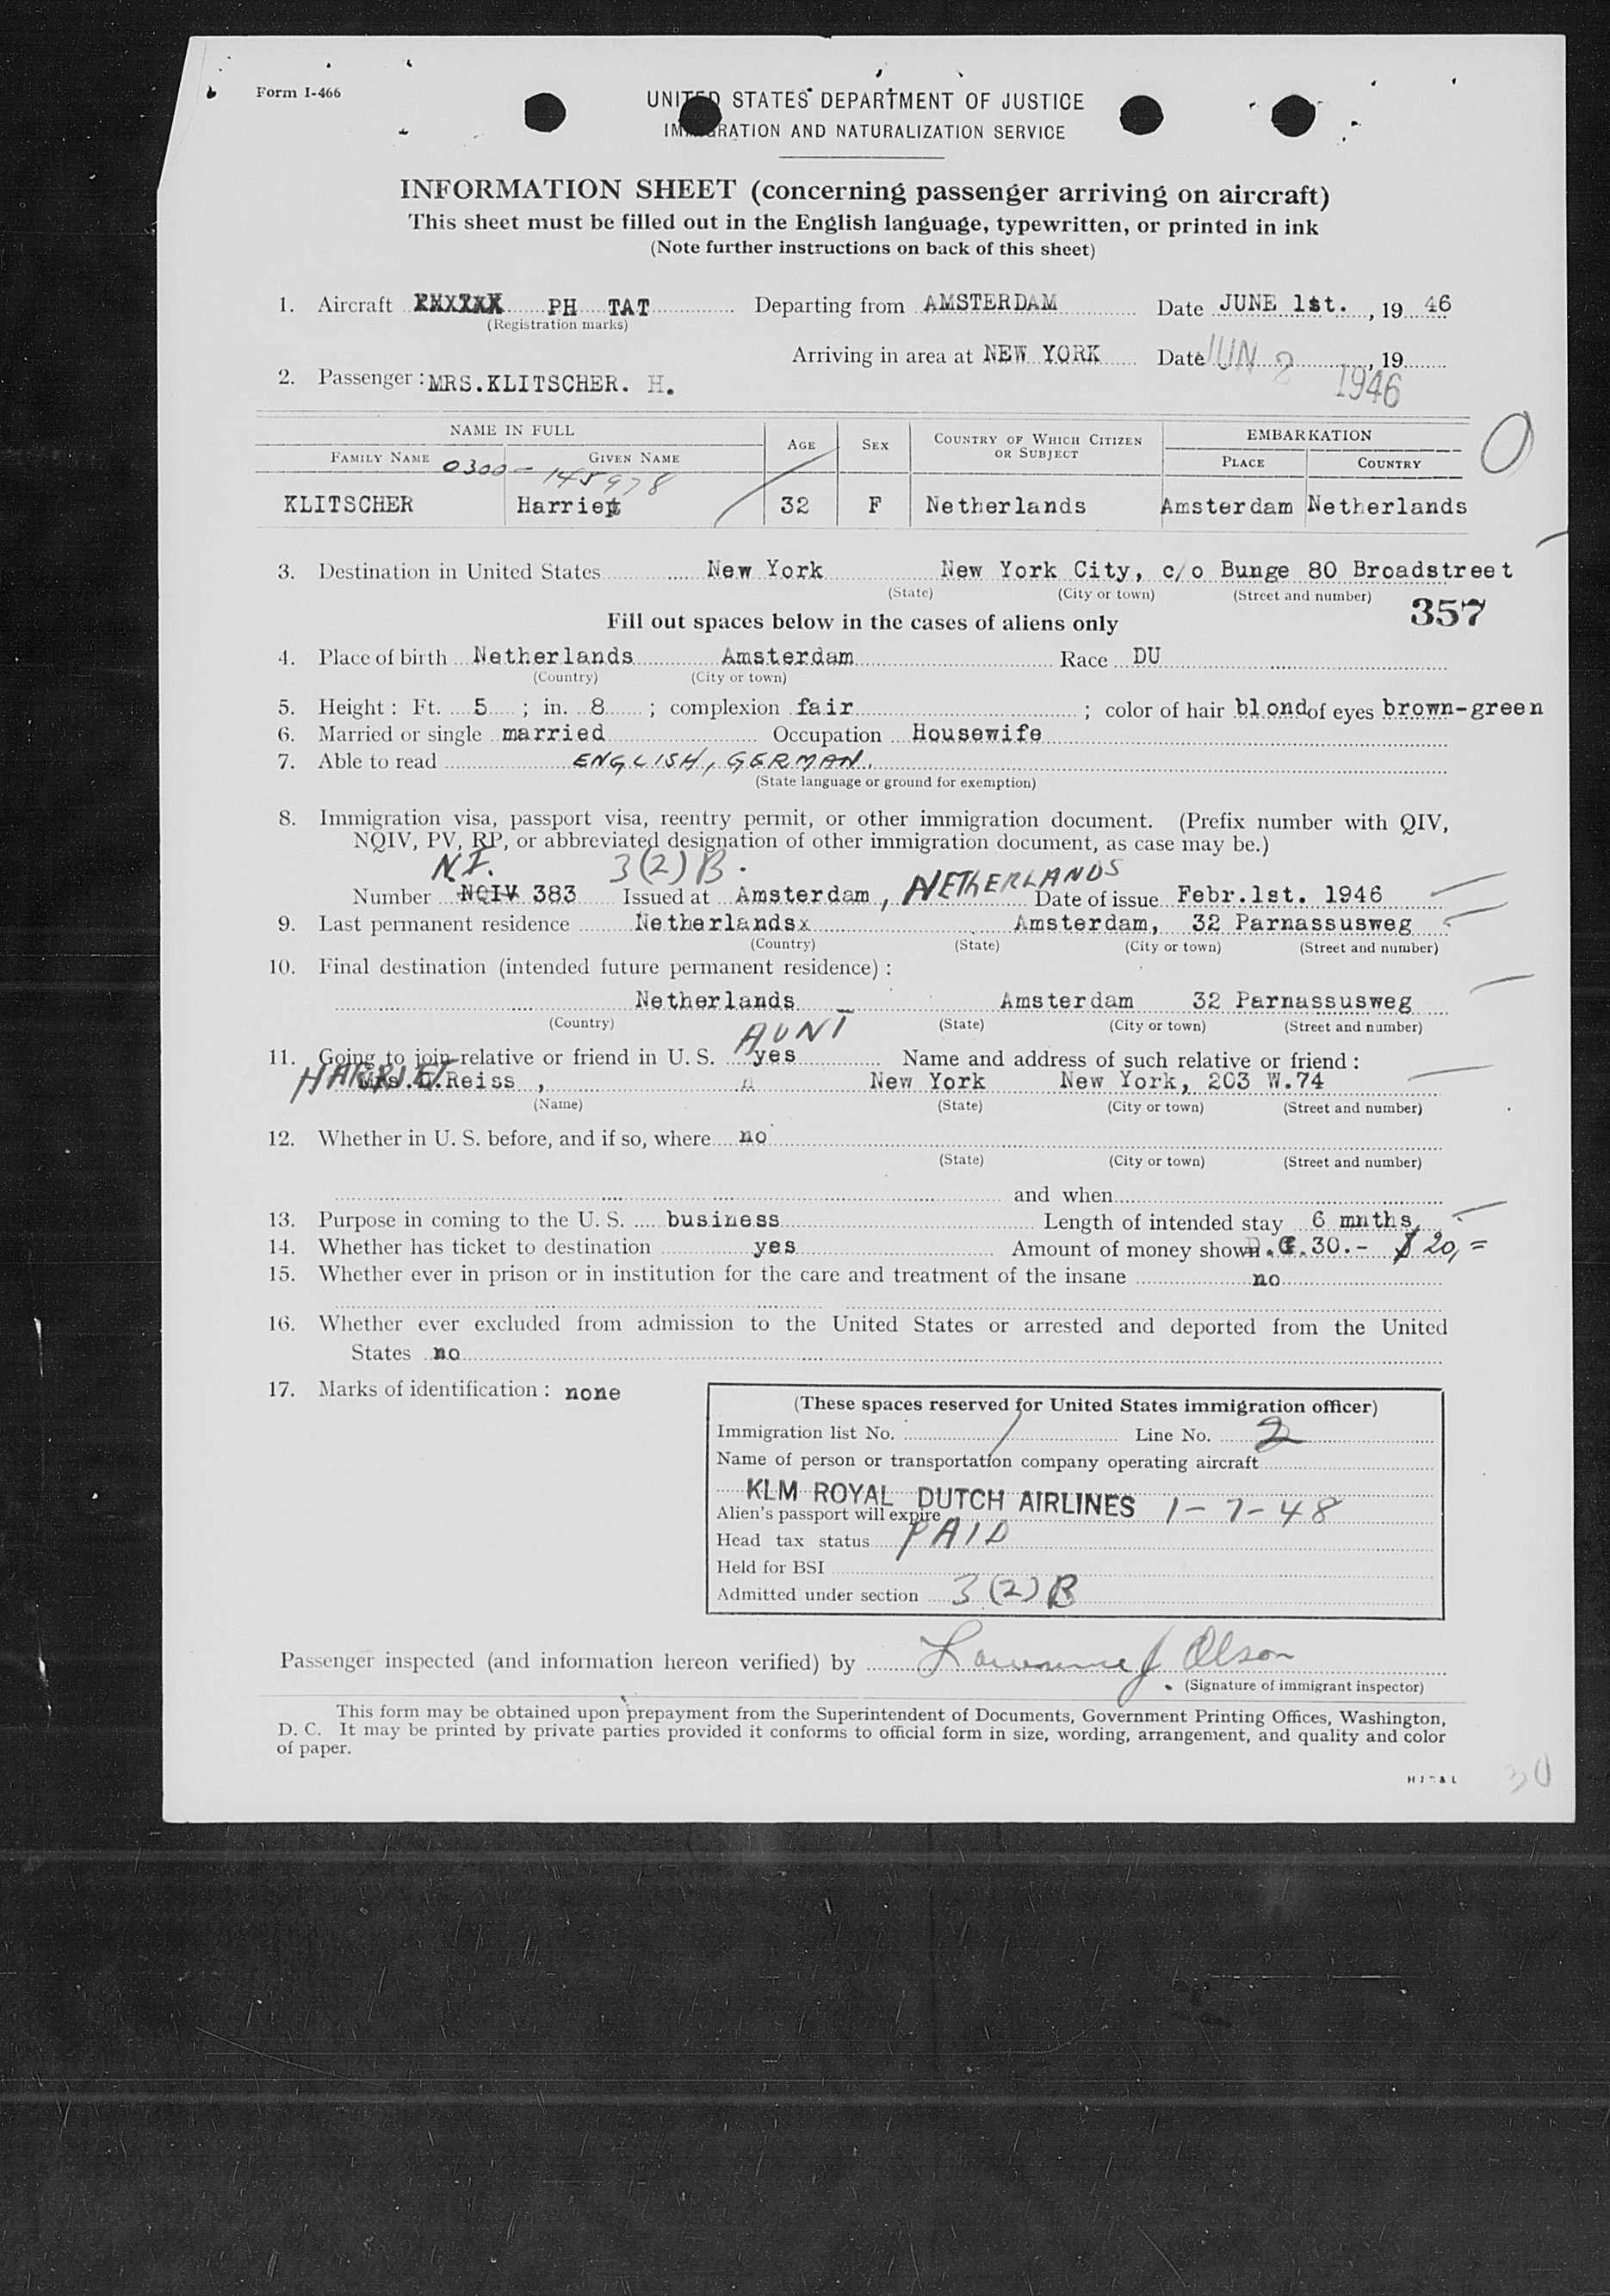 Form I-466
UNITED STATES DEPARTMENT OF JUSTICE
IMMIGRATION AND NATURALIZATION SERVICE
INFORMATION SHEET (concerning passenger arriving on aircraft)
This sheet must be filled out in the English language, typewritten, or printed in ink
(Note further instructions on back of this sheet)
1. Aircraft PH TAT Departing from AMSTERDAM Date JUNE 1st. , 19 46
(Registration marks)
Arriving in area at NEW YORK Date JUN 2 , 19
1946
2. Passenger : MRS.KLITSCHER. H.
NAME IN FULL AGE SEX COUNTRY OF WHICH CITIZEN OR SUBJECT EMBARKATION
FAMILY NAME GIVEN NAME PLACE COUNTRY
0300-145978
KLITSCHER Harriet 32 F Netherlands Amsterdam Netherlands
3. Destination in United States New York New York City, c/o Bunge 80 Broadstreet
(State) (City or town) (Street and number)
357
Fill out spaces below in the cases of aliens only
4. Place of birth Netherlands Amsterdam Race DU
(Country) (City or town)
5. Height : Ft. 5 ; in. 8 ; complexion fair ; color of hair blond of eyes brown-green
6. Married or single married Occupation Housewife
7. Able to read ENGLISH, GERMAN.
(State language or ground for exemption)
8. Immigration visa, passport visa, reentry permit, or other immigration document. (Prefix number with QIV,
NQIV, PV, RP, or abbreviated designation of other immigration document, as case may be.)
N.I. 3(2)B.
Number NQIV 383 Issued at Amsterdam, NETHERLANDS Date of issue Febr.1st. 1946
9. Last permanent residence Netherlandsx Amsterdam, 32 Parnassusweg
(Country) (State) (City or town) (Street and number)
10. Final destination (intended future permanent residence) :
Netherlands Amsterdam 32 Parnassusweg
(Country) (State) (City or town) (Street and number)
AUNT
11. Going to join relative or friend in U. S. yes Name and address of such relative or friend :
HARRIET Reiss , New York New York, 203 W.74
(Name) (State) (City or town) (Street and number)
12. Whether in U. S. before, and if so, where no
(State) (City or town) (Street and number)
and when
13. Purpose in coming to the U. S. business Length of intended stay 6 mnths
14. Whether has ticket to destination yes Amount of money shown 30.- $ 20,=
15. Whether ever in prison or in institution for the care and treatment of the insane no
16. Whether ever excluded from admission to the United States or arrested and deported from the United
States no
17. Marks of identification : none
(These spaces reserved for United States immigration officer)
Immigration list No. 1 Line No. 2
Name of person or transportation company operating aircraft
KLM ROYAL DUTCH AIRLINES
Alien's passport will expire 1-7-48
Head tax status PAID
Held for BSI
Admitted under section 3(2)B
Passenger inspected (and information hereon verified) by Lawrence J Olson
(Signature of immigrant inspector)
This form may be obtained upon prepayment from the Superintendent of Documents, Government Printing Offices, Washington,
D. C. It may be printed by private parties provided it conforms to official form in size, wording, arrangement, and quality and color
of paper.
30